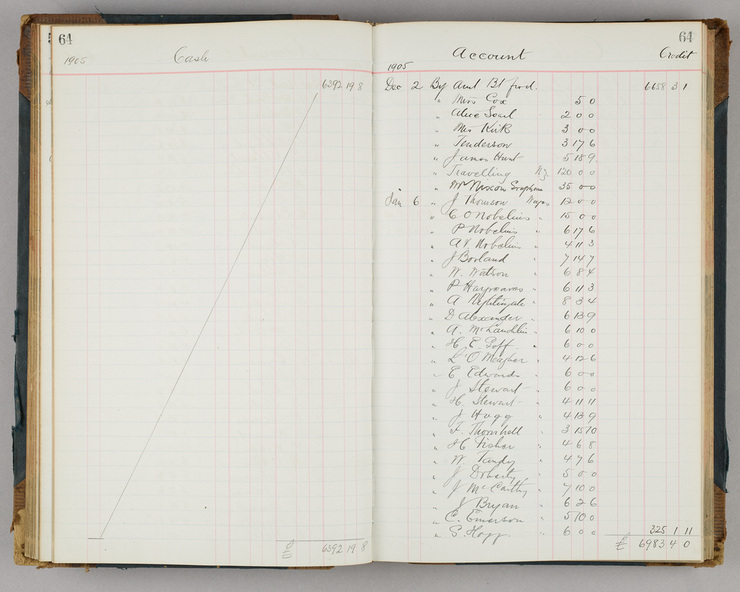 64
1905 Cash
6392 19 8
£ 6392 19 8
64
Account Credit
1905
Dec 2 By Amt Bt ford. 6658 3 1
" Miss Cox 5 0
" Alice Soul 2 0 0
" Mrs Kirk 3 0 0
" Tenderson 3 17 6
" James Hunt 5 18 9
" Travelling 120 0 0
" Mr Nixon 35 0 0
Jan 6 " J Thomson Wages 12 0 0
" C O Nobelius " 15 0 0
" P Nobelius " 6 17 6
" A V Nobelius " 4 11 3
" J Borland " 7 14 7
" W. Watson " 6 8 4
" P Hargreaves " 6 11 3
" A Nightingale " 8 3 4
" D Alexander " 6 13 9
" A. McLaughlin " 6 10 0
" H E Goff " 6 0 0
" L O'Meagher " 4 12 6
" E Edwards " 6 0 0
" J Stewart " 6 0 0
" H. Stewart " 4 11 11
" J Hogg " 4 13 9
" F. Thornhell " 3 15 10
" H Fisher " 4 6 8
" W Tandy " 4 7 6
" J Doherty " 5 0 0
" J McCarthy " 7 10 0
" J Bryan " 6 2 6
" C. Emerson " 5 10 0
" S. Hopp " 6 0 0
325 1 11
£ 6983 4 0